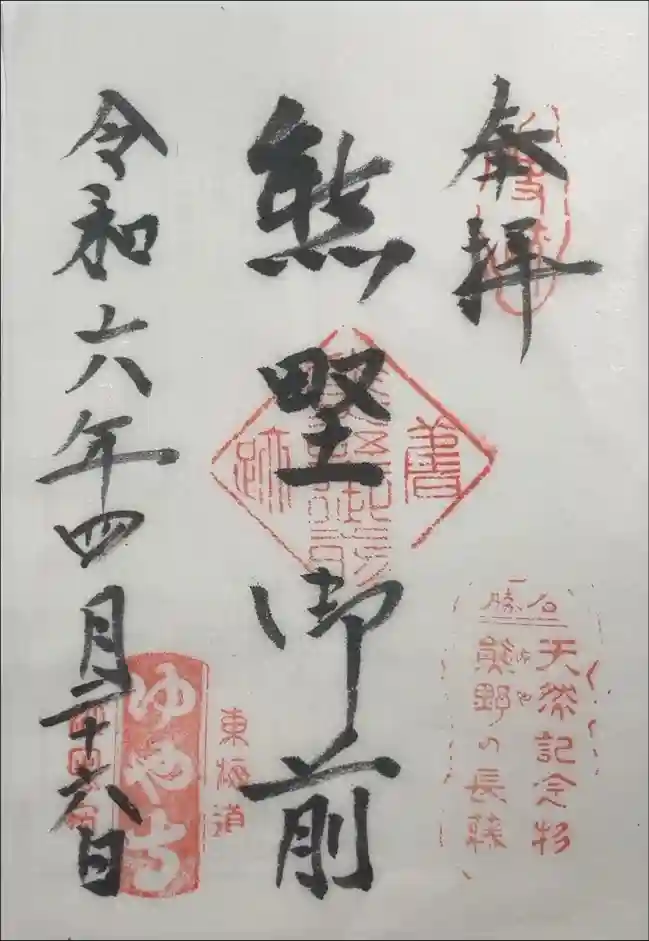 奉拝
熊野御前
令和六年四月二十六日
舊
跡
名勝
天然記念物
熊野の長藤
東海道